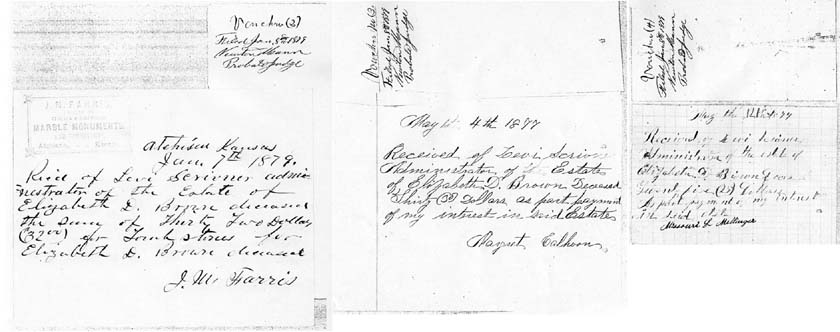 Voucher (2)
Filed Jan. 8th 1879
Probate Judge
J. M. FARRIS
MARBLE MONUMENTS
Atchison, Kans.
Atchison Kansas
Jan. 7th 1879.
Recd of Levi Scrivner admi-
nistrator of the Estate of
Elizabeth D. Brown deceased
the sum of Thirty Two Dollars
(32.00) for Tomb stones for
Elizabeth D. Brown deceased
J. M. Farris
Voucher No
Filed Jan 8th 1879
Probate Judge
May 4th 1877
Received of Levi Scrivn
Administrator of Estate
of Elizabeth D. Brown Deceased
Thirty (30) Dollars as part payment
of my interest in said Estate
Calhoun
Voucher (4)
Filed Jan 8th 1879
Probate Judge
May the 1877
Received of Levi
Administrator of the estate of
Elizabeth D Brown
five Dollars
part payment of my interest
said
Missouri L Mellinger